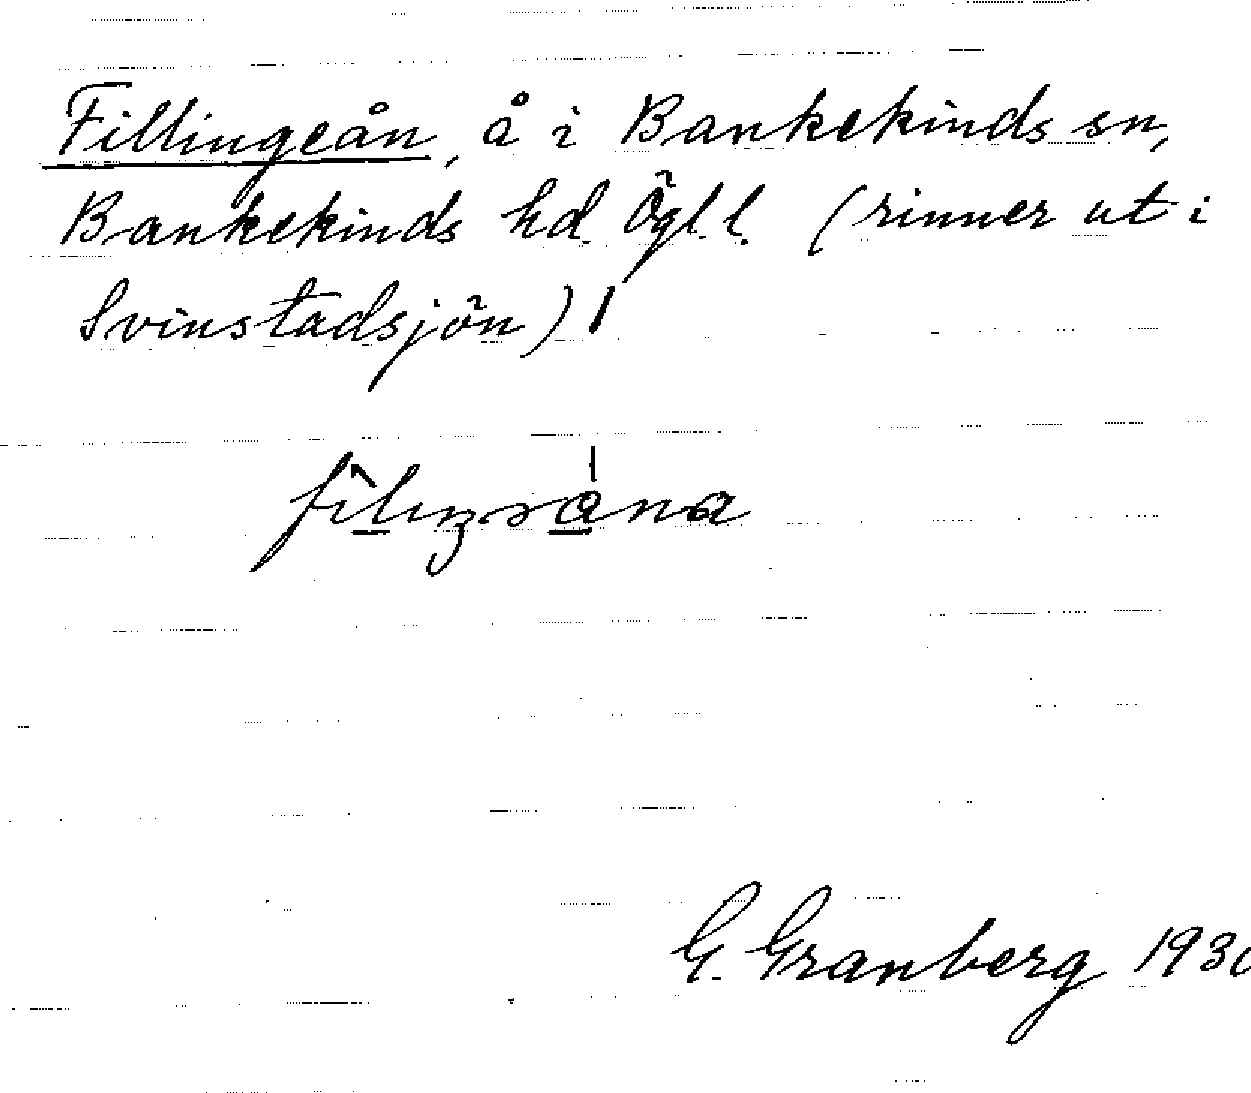 Fillingeån, å i Bankekinds sn,
Bankekinds hd. Ögl. l. (rinner ut i
Svinstadsjön)
G. Granberg 193